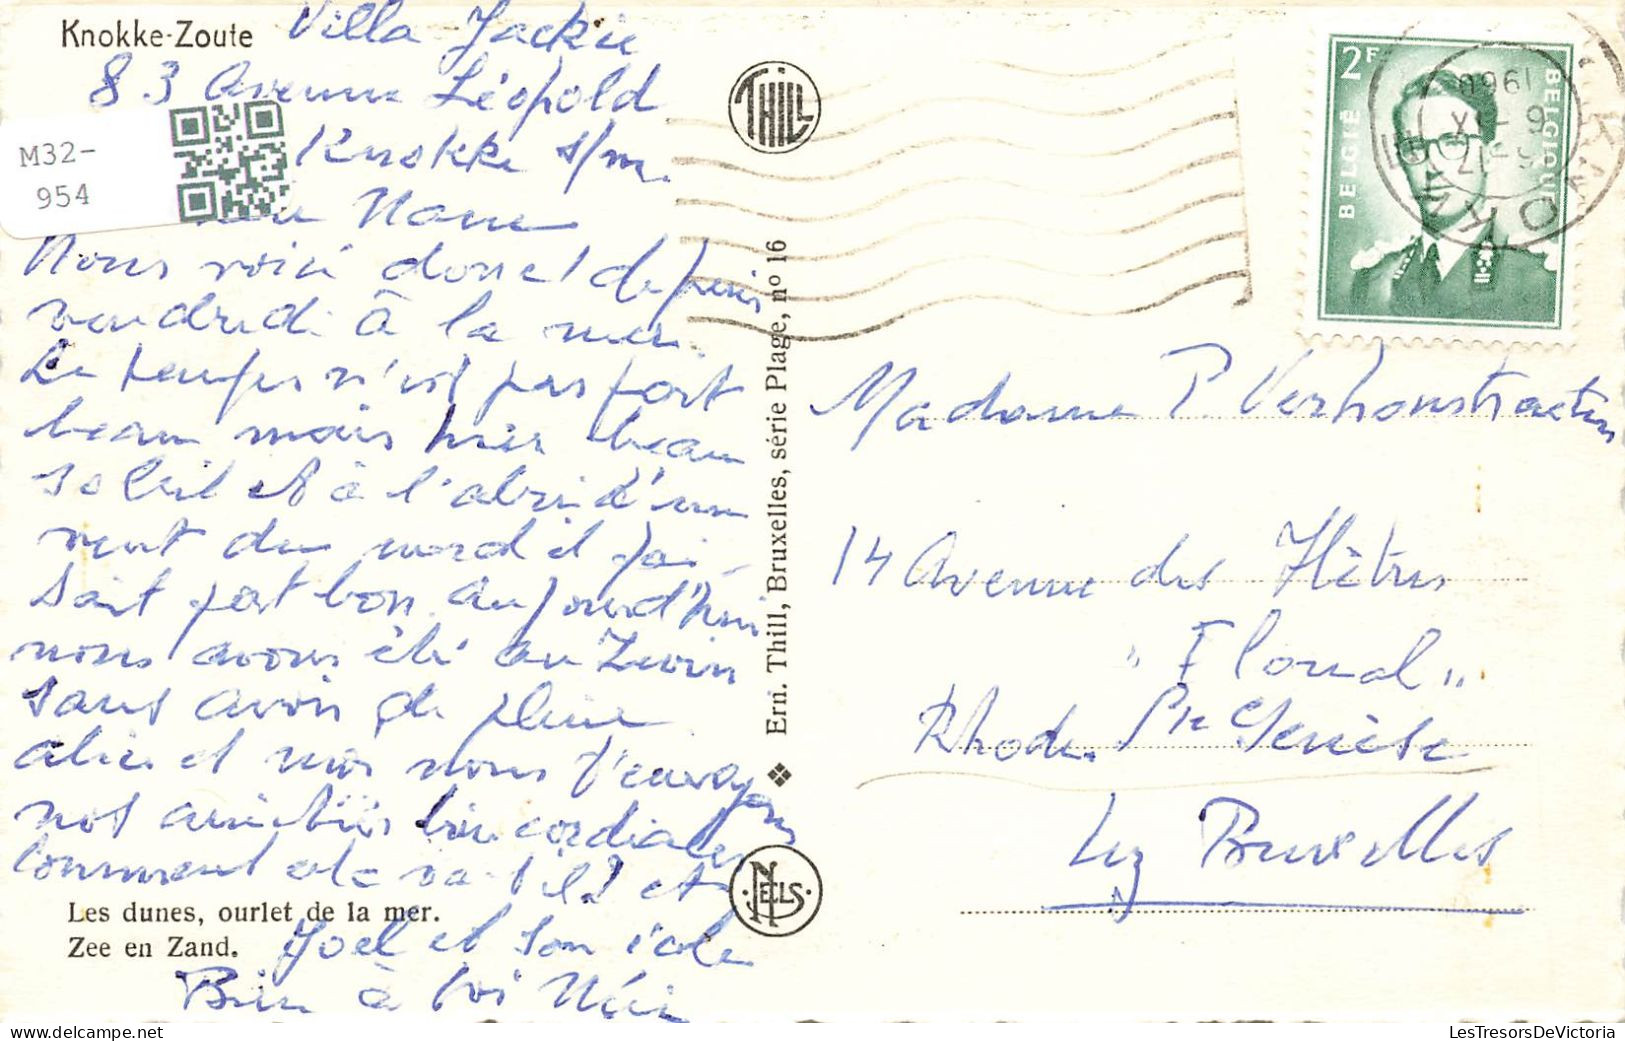 Knokke-Zoute Villa Jackie
83 Avenue Léopold
Knokke s/m.
M32-
954
Nous voici donc depuis
vendredi à la mer.
Le temps n'est pas fort
beau mais hier beau
soleil et à l'abri d'un
vent du nord il fai-
sait fort bon aujourd'hui
nous avons été au Zwin
sans avoir de pluie
et nous nous t'envoyons
nos amitiés bien cordiales
Comment cela va-t-il? et
Joël et son école
Bien à toi
Les dunes, ourlet de la mer.
Zee en Zand.
THILL
Ern. Thill, Bruxelles, série Plage, nº 16
NELS
2F
BELGIË
BELGIQUE
KNOKKE
Madame P. Verhonstraeten
14 Avenue des Hêtres
"Floréal"
Rhode Ste Genèse
Lez Bruxelles
LesTresorsDeVictoria